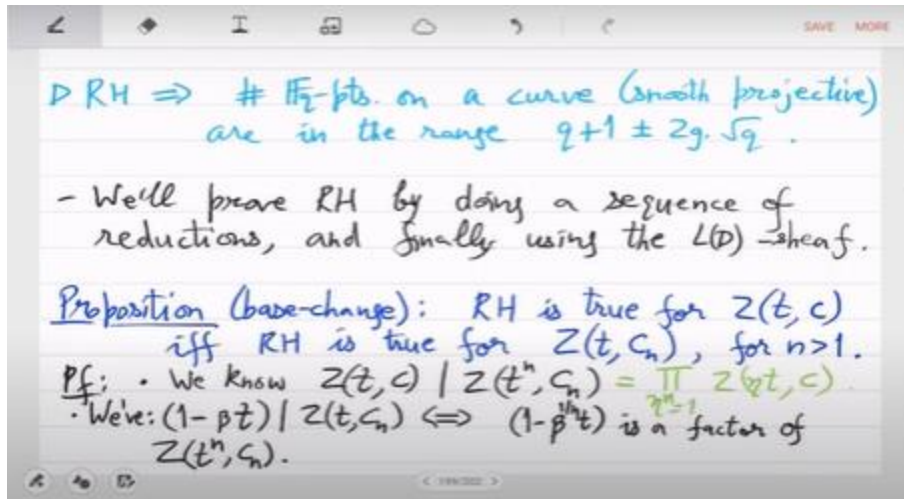 SAVE MORE
▷ RH ⇒ # 𝔽q-pts. on a curve (smooth projective)
are in the range q+1 ± 2g.√q .
- We'll prove RH by doing a sequence of
reductions, and finally using the L(D)-sheaf.
Proposition (base-change): RH is true for Z(t, C)
iff RH is true for Z(t, Cₙ), for n>1.
Pf: • We know Z(t, C) | Z(tⁿ, Cₙ) = ∏_{ηⁿ=1} Z(ηt, C).
• We've: (1-βt) | Z(t, Cₙ) ⇔ (1-β^{1/n}t) is a factor of
Z(tⁿ, Cₙ).